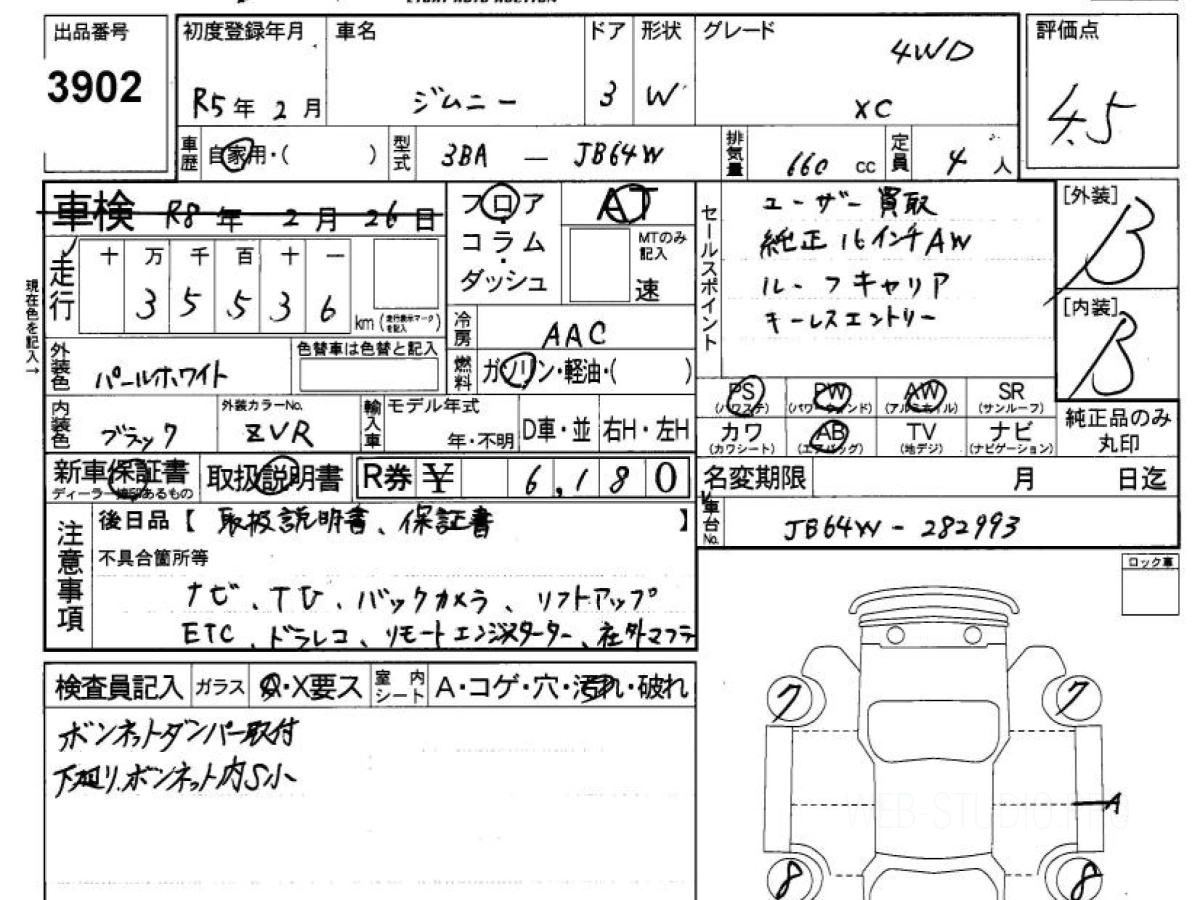 出品番号
3902
初度登録年月
R5年 2月
車名
ジムニー
ドア
3
形状
W
グレード
4WD
XC
評価点
4.5
車歴
自家用・( )
型式
3BA - JB64W
排気量
660 cc
定員
4人
車検 R8年 2月 26日
走行
十 万 千 百 十 一
3 5 5 3 6
km(走行表示マークを記入)
現在色を記入→
フロア・コラム・ダッシュ
AT
MTのみ記入
速
冷房
AAC
燃料
ガソリン・軽油・( )
セールスポイント
ユーザー買取
純正16インチAW
ルーフキャリア
キーレスエントリー
[外装]
B
[内装]
B
外装色
パールホワイト
色替車は色替と記入
内装色
ブラック
外装カラーNo.
ZVR
輸入車
モデル年式
年・不明
D車・並
右H・左H
PS
(パワステ)
PW
(パワーウィンド)
AW
(アルミホイル)
SR
(サンルーフ)
カワ
(カワシート)
AB
(エアバッグ)
TV
(地デジ)
ナビ
(ナビゲーション)
純正品のみ
丸印
新車保証書
ディーラー捺印あるもの
取扱説明書
R券 ¥ 6,180
名変期限 月 日迄
車台No.
JB64W-282993
注意事項
後日品【 取扱説明書、保証書 】
不具合箇所等
ナビ、TV、バックカメラ、リフトアップ
ETC、ドラレコ、リモートエンジンスターター、社外マフラ
ロック車
検査員記入
ガラス
A・X要ス
室内シート
A・コゲ・穴・汚れ・破れ
ボンネットダンパー取付
下廻り、ボンネット内S小
7
7
A
8
8
WEB-STUDIO.PRO